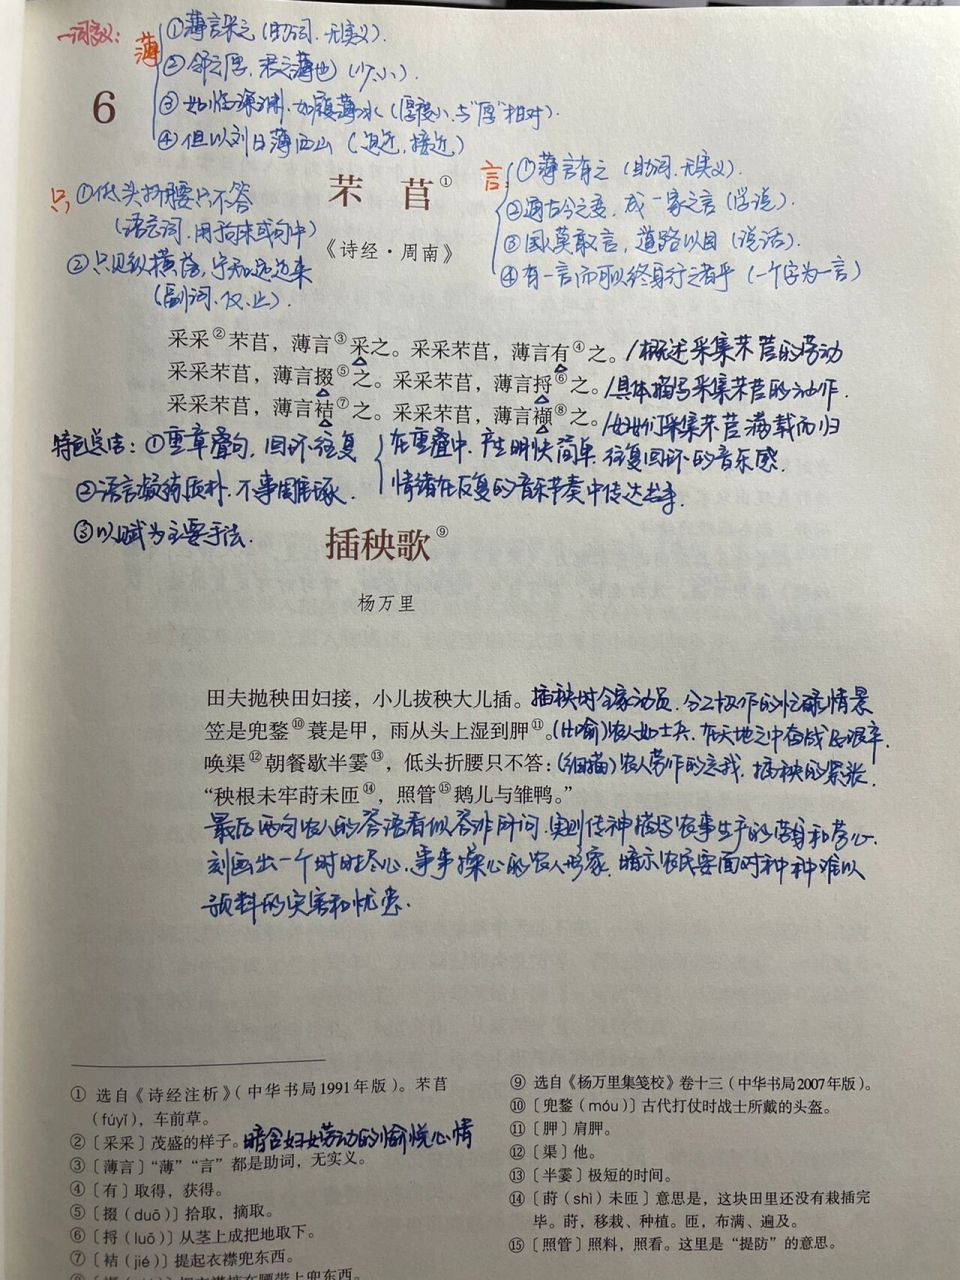 一词多义：
薄
①薄言采之（助词.无实义）.
②邻之厚，君之薄也（少.小）.
③如临深渊.如履薄冰（厚度小.与“厚”相对）.
④但以刘日薄西山（迫近，接近）
6
芣 苢①
《诗经·周南》
言
①薄言有之（助词.无实义）.
②通古今之变，成一家之言（学说）.
③国人莫敢言，道路以目（说话）.
④有一言而可以终身行之者乎（一个字为一言）
只
①低头折腰只不答
（语末或句中）
②只见纵横落，宁知远近来
（副词.仅.止）.
采采②芣苢，薄言③采之。采采芣苢，薄言有④之。/概述采集芣苢的劳动
采采芣苢，薄言掇⑤之。采采芣苢，薄言捋⑥之。/具体描写采集芣苢的动作.
采采芣苢，薄言袺⑦之。采采芣苢，薄言襭⑧之。/妇女们采集芣苢满载而归
特色总结：①重章叠句，回环往复
在重叠中.产生明快简单.往复回环的音乐感.
②语言凝练质朴.不事雕琢.
情绪在反复的音乐节奏中传达出来.
③以赋为主要手法.
插秧歌⑨
杨万里
田夫抛秧田妇接，小儿拔秧大儿插。插秧时全家动员.分工协作的忙碌情景
笠是兜鍪⑩蓑是甲，雨从头上湿到胛⑪。（比喻）农人如士兵.在天地之中奋战之艰辛.
唤渠⑫朝餐歇半霎⑬，低头折腰只不答：（细描）农人劳作的忘我.插秧的紧张.
“秧根未牢莳未匝⑭，照管⑮鹅儿与雏鸭。”
最后两句农人的答语看似答非所问.实则传神描写农事生产的劳身和劳心.
刻画出一个时时尽心.事事操心的农人世家.暗示农民要面对种种难以
预料的灾害和忧患.
① 选自《诗经注析》（中华书局1991年版）。芣苢
（fúyǐ），车前草。
②〔采采〕茂盛的样子。暗含妇女劳动的愉悦心情
③〔薄言〕“薄”“言”都是助词，无实义。
④〔有〕取得，获得。
⑤〔掇（duō）〕拾取，摘取。
⑥〔捋（luō）〕从茎上成把地取下。
⑦〔袺（jié）〕提起衣襟兜东西。
⑨ 选自《杨万里集笺校》卷十三（中华书局2007年版）。
⑩〔兜鍪（móu）〕古代打仗时战士所戴的头盔。
⑪〔胛〕肩胛。
⑫〔渠〕他。
⑬〔半霎〕极短的时间。
⑭〔莳（shì）未匝〕意思是，这块田里还没有栽插完
毕。莳，移栽、种植。匝，布满、遍及。
⑮〔照管〕照料，照看。这里是“提防”的意思。